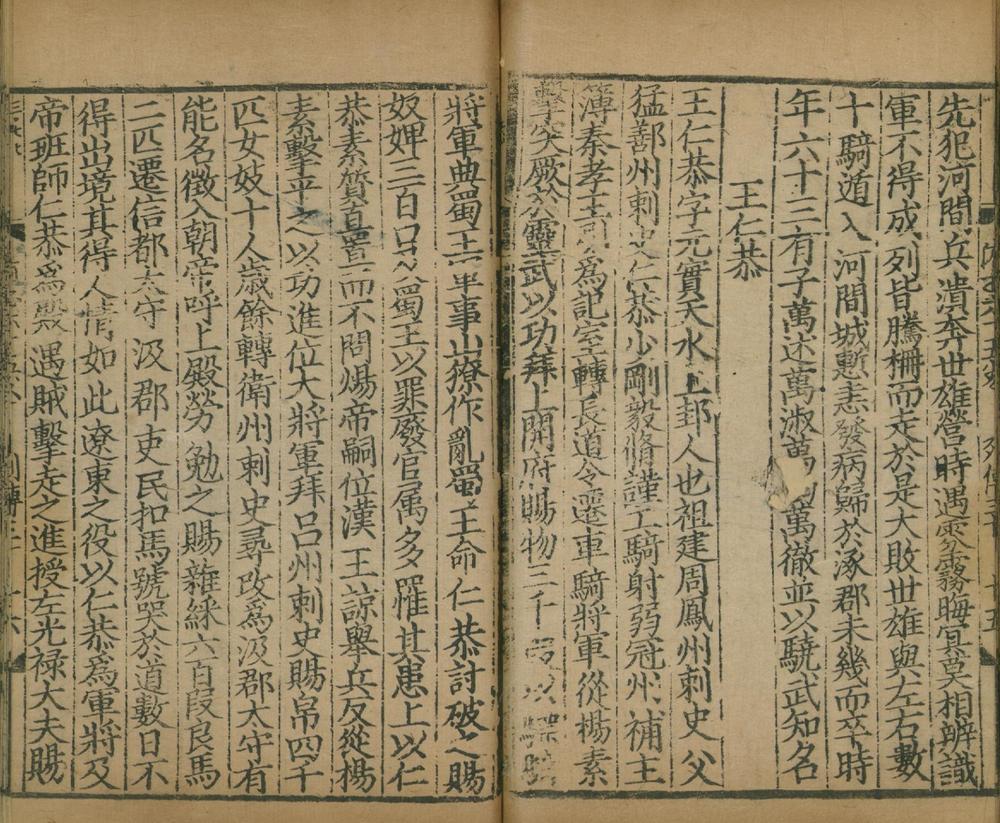 先犯河間兵潰奔世雄營時遇雰霧晦冥莫相辨識
軍不得成列皆騰柵而走於是大敗世雄與左右數
十騎遁入河間城慙恚發病歸於涿郡未幾而卒時
年六十三有子萬述萬淑萬萬徹並以驍武知名
王仁恭
王仁恭字元實天水上邽人也祖建周鳳州刺史父
猛鄯州刺史仁恭少剛毅脩謹工騎射弱冠州補主
簿秦孝王引爲記室轉長道令遷車騎將軍從楊素
擊突厥於靈武以功拜上開府賜物三千段以驃騎
將軍典蜀王軍事山獠作亂蜀王命仁恭討破之賜
奴婢三百口及蜀王以罪廢官属多罹其患上以仁
恭素質直置而不問煬帝嗣位漢王諒舉兵反從楊
素擊平之以功進位大將軍拜呂州刺史賜帛四千
匹女妓十人歲餘轉衛州刺史尋改爲汲郡太守有
能名徵入朝帝呼上殿勞勉之賜雜綵六百段良馬
二匹遷信都太守汲郡吏民扣馬號哭於道數日不
得出境其得人情如此遼東之役以仁恭爲軍將及
帝班師仁恭爲殿遇賊擊走之進授左光禄大夫賜